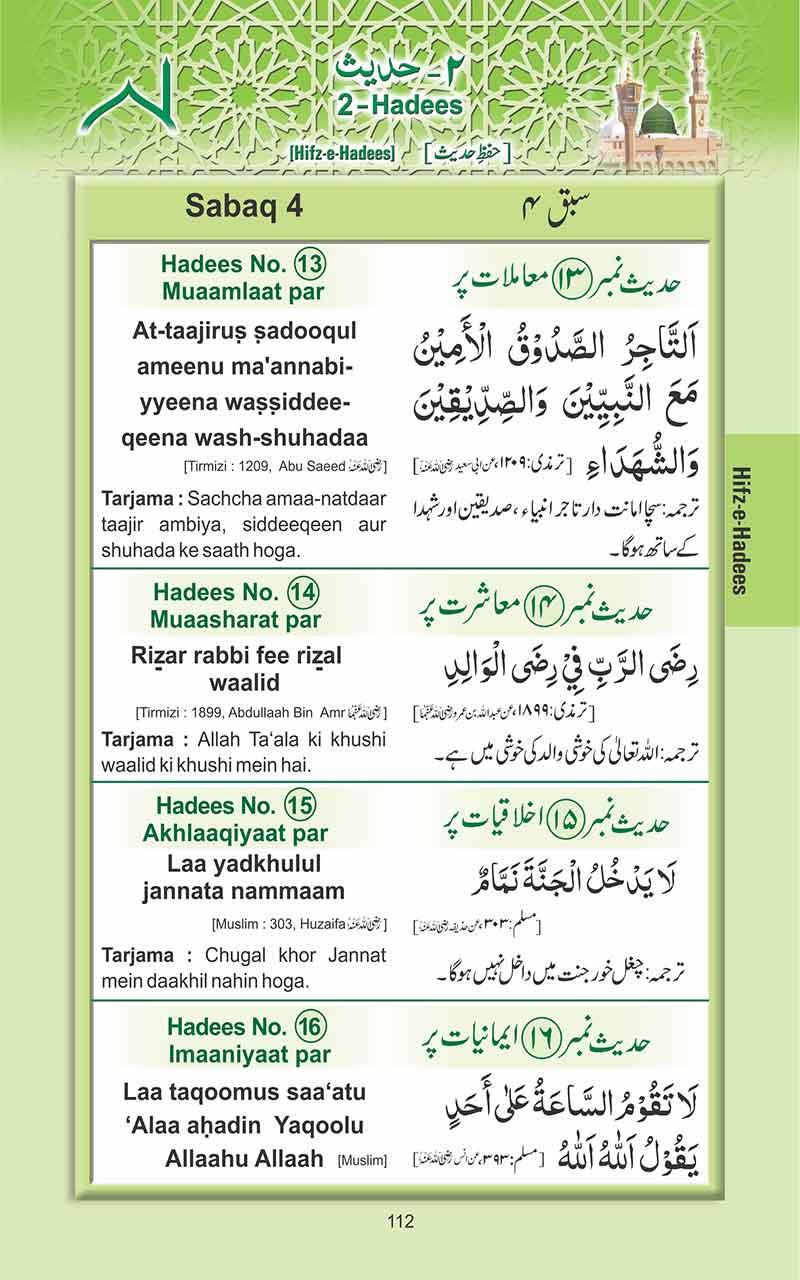 ۲ - حدیث
2-Hadees
[Hifz-e-Hadees] [حفظِ حدیث]
Sabaq 4
سبق ۴
Hadees No. 13
Muaamlaat par
حدیث نمبر ۱۳ معاملات پر
At-taajiruṣ ṣadooqul
ameenu ma'annabi-
yyeena waṣṣiddee-
qeena wash-shuhadaa
[Tirmizi : 1209, Abu Saeed رضی اللہ عنہ]
Tarjama : Sachcha amaa-natdaar
taajir ambiya, siddeeqeen aur
shuhada ke saath hoga.
اَلتَّاجِرُ الصَّدُوْقُ الْأَمِيْنُ
مَعَ النَّبِيِّيْنَ وَالصِّدِّيْقِيْنَ
وَالشُّهَدَاءِ [ترمذی: ۱۲۰۹، عن ابی سعید رضی اللہ عنہ]
ترجمہ: سچا امانت دار تاجر انبیاء، صدیقین اور شہدا
کے ساتھ ہوگا۔
Hadees No. 14
Muaasharat par
حدیث نمبر ۱۴ معاشرت پر
Riẕar rabbi fee riẕal
waalid
[Tirmizi : 1899, Abdullaah Bin Amr رضی اللہ عنہما]
Tarjama : Allah Ta‘ala ki khushi
waalid ki khushi mein hai.
رِضَى الرَّبِّ فِيْ رِضَى الْوَالِدِ
[ترمذی: ۱۸۹۹، عن عبداللہ بن عمرو رضی اللہ عنہما]
ترجمہ: اللہ تعالیٰ کی خوشی والد کی خوشی میں ہے۔
Hadees No. 15
Akhlaaqiyaat par
حدیث نمبر ۱۵ اخلاقیات پر
Laa yadkhulul
jannata nammaam
[Muslim : 303, Huzaifa رضی اللہ عنہ]
Tarjama : Chugal khor Jannat
mein daakhil nahin hoga.
لَا يَدْخُلُ الْجَنَّةَ نَمَّامٌ
[مسلم: ۳۰۳، عن حذیفہ رضی اللہ عنہ]
ترجمہ: چغل خور جنت میں داخل نہیں ہوگا۔
Hadees No. 16
Imaaniyaat par
حدیث نمبر ۱۶ ایمانیات پر
Laa taqoomus saa‘atu
‘Alaa aḥadin Yaqoolu
Allaahu Allaah [Muslim]
لَا تَقُوْمُ السَّاعَةُ عَلٰى أَحَدٍ
يَقُوْلُ اَللّٰهُ اَللّٰهُ [مسلم: ۳۹۳، عن انس رضی اللہ عنہ]
Hifz-e-Hadees
112